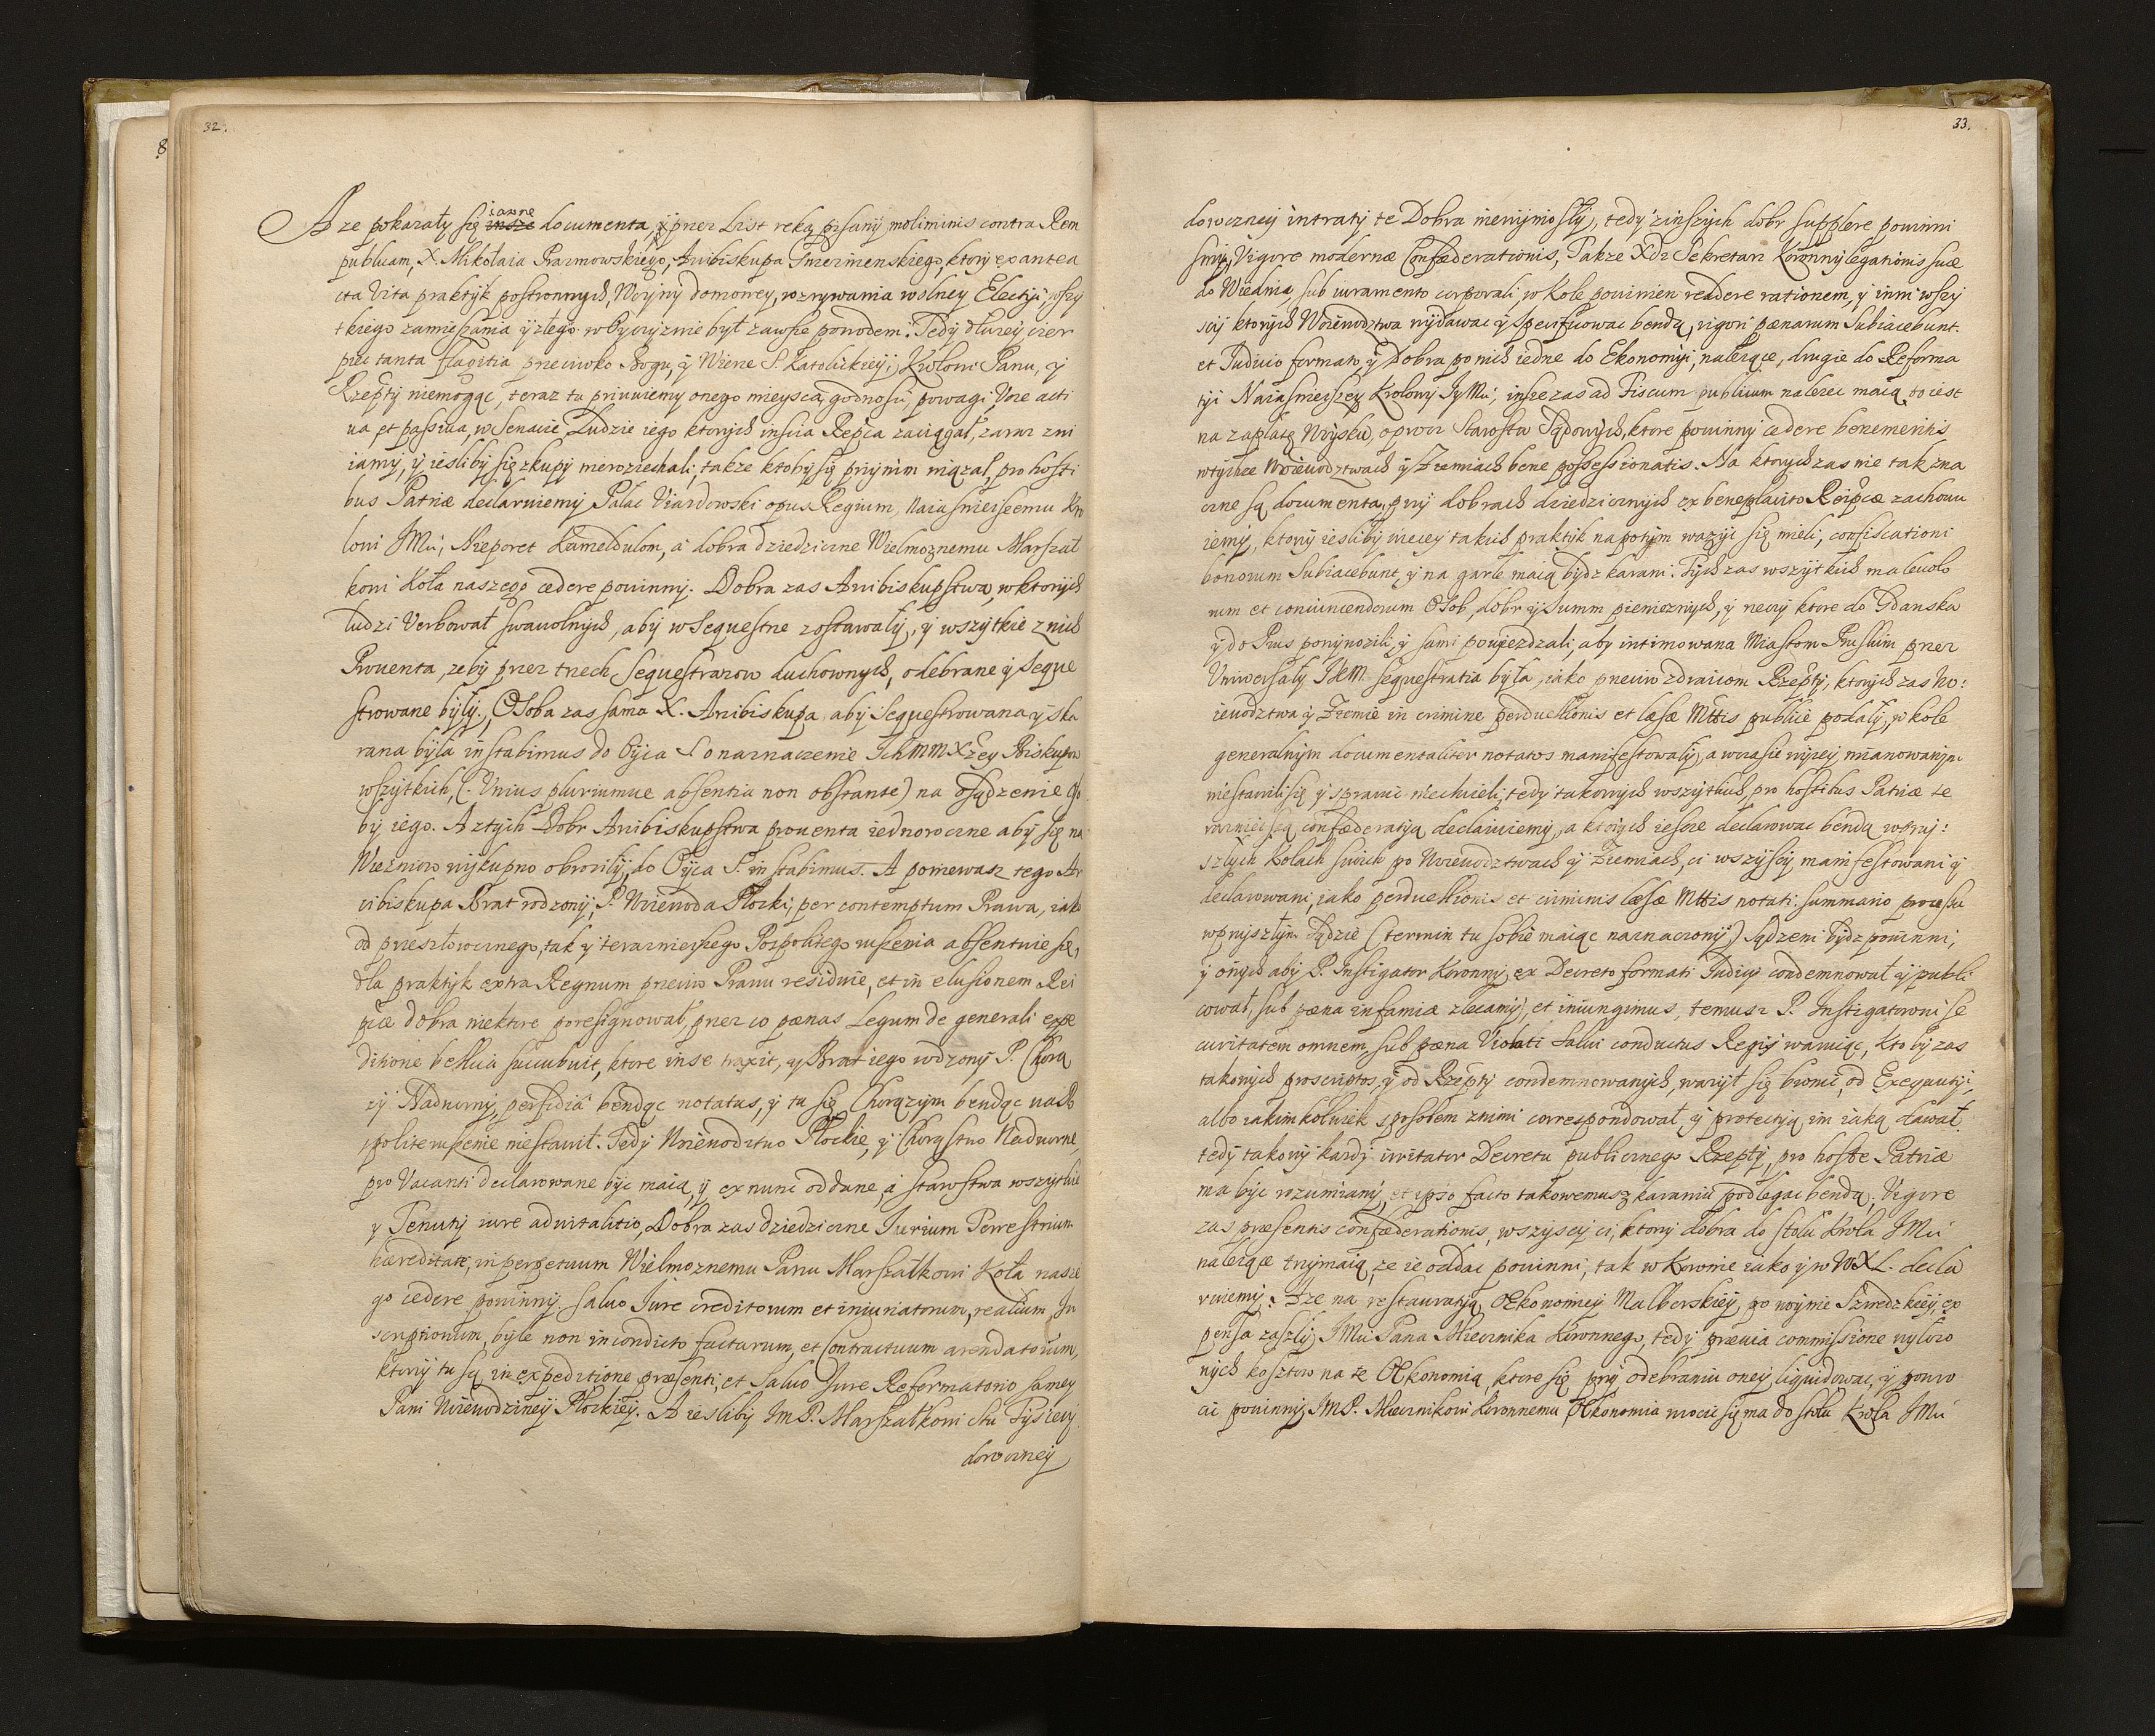 8
32.
A ze pokazały się iawne insze documenta, y przez List ręką pisany moliminis contra Rem
publicam, X. Mikołaia Prazmowskiego, Arcibiskupa Gnieznienskiego, ktory ex antea
cta Vita praktyk postronnych, Woyny domowey, rozrywania wolney Electÿi, wszy
tkiego zamieszania y złego w Oyczyznie był zawsze powodem: Tedy dłuzey cier
piec tanta flagitia przeciwko Bogu, y Wierze S. Katolickieÿ, Krolowi Panu, y
Rzeptÿ niemogąc, teraz tu priuuiemy onego mieysca, godnosci, powagi, Voce acti
ua et passiua, w Senacie Ludzie iego ktorych inscia Repca zaciągał, zaraz zni
iamy, y iesliby się zkupy nieroziechali, takze ktoby się przynim wiązał, pro hosti
bus Patriæ declaruiemy Pałac Uiazdowski opus Regium, Naiasnieiszemu Kro
lowi JMci, Nieporet Kameldulom, a dobra dziedziczne Wielmoznemu Marszał
kowi Koła naszego cedere powinny. Dobra zas Arcibiskupstwa, w ktorych
ludzi Verbował swawolnych, aby w Sequestrze zostawały, y wszytkie z nich
Prouenta, zeby przez trzech Sequestrarow duchownych, odebrane y Seque
strowane były. Osoba zas sama X. Arcibiskupa aby Sequestrowana y ska
rana była instabimus do Oyca S o naznaczenie Ichmm Xzey Biskupow
wszytkich, (Unius pluriumue absentia non obstante) na osądzenie Oso
by iego. A z tych Dobr Arcibiskupstwa prouenta iednoroczne aby się na
Wieźniow wykupno obrociły, do Oyca S. instabimus. A poniewasz tego Ar
cibiskupa Brat rodzony, P. Woiewoda Płocki, per contemptum Prawa, iako
od przeszłorocznego, tak y teraznieyszego Pospolitego ruszenia absentuie się,
dla praktyk extra Regnum przeciw Prawu residuie, et in elusionem Rei
pcæ dobra niektore poresignował, przez co pænas Legum de generali expe
ditione bellica succubuit, ktore in se traxit, y Brat iego rodzony P. Chorą
zy Nadworny, perfidiâ bendąc notatus, y tu się Chorązym bendąc na Po
spolite ruszenie niestawił. Tedy Woiewodztwo Płockie, y Chorąstwo Nadworne,
pro Vacanti declarowane byc maią, y ex nunc oddane, a starostwa wszytkie
y Tenuty iure aduitalitio, Dobra zas dziedziczne Iurium Terrestrium
hæreditate, in perpetuum Wielmoznemu Panu Marszałkowi Koła nasze
go cedere powinny. Saluo Jure creditorum et iniuriatorum, realium In
scriptionum, byle non in condicto factarum, et Contractuum arendatorum,
ktorzy tu są in expeditione præsenti, et Saluo Jure Reformatorio samey
Pani Woiewodzineÿ Płockieÿ. A iesliby Im P. Marszałkowi stu Tysięcy
doroczneÿ
33.
doroczneÿ intraty te Dobra niewyniosły, tedy z inszych dobr supplere powinni
smy, Vigore modernæ Confæderationis, Takze Xdz Sekretarz Koronny legationis suæ
do Wiednia, sub iuramento corporali w Kole powinien reddere rationem, y inni wszy
scy ktorych Woiewodztwa wydawac y specificowac bendą, rigori pænarum Subiacebunt.
et Iudicio formato, y Dobra po nich iedne do Ekonomÿi, nalezące, drugie do Reforma
tÿi Naiasnieiszey Krolowy JeyMci, insze zas ad Fiscum publicum nalezec maią, to iest
na zapłatę Woysku, oprocz Starostw Sądowych, ktore powinny cedere benemeritis
w tychze Woiewodztwach y Ziemiach bene possessionatis. Na ktorych zas nie tak zna
czne są documenta, przy dobrach dziedzicznych ex beneplacito Reipcæ zachowu
iemy, ktorzy iesliby wiecey takich praktik na potym wazyc się mieli, confiscationi
bonorum Subiacebunt, y na garle maią bydz karani. Tych zas wszytkich maleuolo
rum et conuincendorum Osob, dobr y Summ pieniężnych, y rzeczy ktore do Gdanska
y do Prus powynozili, y sami powyezdzali, aby intimowana Miastom Pruskim przez
Uniwersały JKM. sequestratia była, iako przeciw zdraicom Rzepty, ktorych zas Wo:
iewodztwa y Ziemie in crimine perduellionis et læsæ Mttis publice podały, w kole
generalnym documentaliter notatos manifestowały, a wczasie wyzey mianowanym
niestawili się y sprawic niechcieli, tedy takowych wszytkich, pro hostibus Patriæ te
raznieiszą confæderatÿą declaruiemy, a ktorych iescze declarowac bendą w przy:
szłych Kołach swoich po Woiewodztwach y Ziemiach, ci wszyscy manifestowani y
declarowani, iako perduellionis et criminis læsæ Mttis notati. summario processu
w przyszłym Sądzie (termin tu sobie maiąc naznaczony) Sądzeni bydz powinni,
y onych aby P. Instigator Koronny, ex Decreto formati Iudicÿ condemnował y publi
cował, sub pæna infamiæ zlecamy, et iniungimus, temusz P. Instigatorowi se
curitatem omnem, sub pæna Violati Salui conductus Regÿ waruiąc, Kto by zas
takowych proscriptos, y od Rzepty condemnowanych, wazył się bronic, od Exequutÿi,
albo iakimkolwiek sposobem z nimi correspondował, y protectÿą im iaką dawał.
tedy takowy kazdy irritator Decretu publicznego Rzepty, pro hoste Patriæ
ma byc rozumiany, et ipso facto takowemusz karaniu podlegac bendą. Vigore
zas præsentis confæderationis, wszyscy ci, ktorzy dobra do stołu Krola JMci
nalezące trzymaią, ze ie oddac powinni, tak w Koronie iako y w WXL. decla
ruiemy. A ze na restauratÿą Œkonomiey Malborskieÿ, po woynie Szwedzkieÿ, ex
pensa zaszły JMci Pana Miecznika Koronnego, tedy præuia commissione wyłozo
nych kosztow na te Œkonomią, ktore się przy odebraniu oneÿ liquidowac, y powro
cic powinny, JMP. Miecznikowi Koronnemu Œkonomia wrocic się ma do stołu Krola JMci